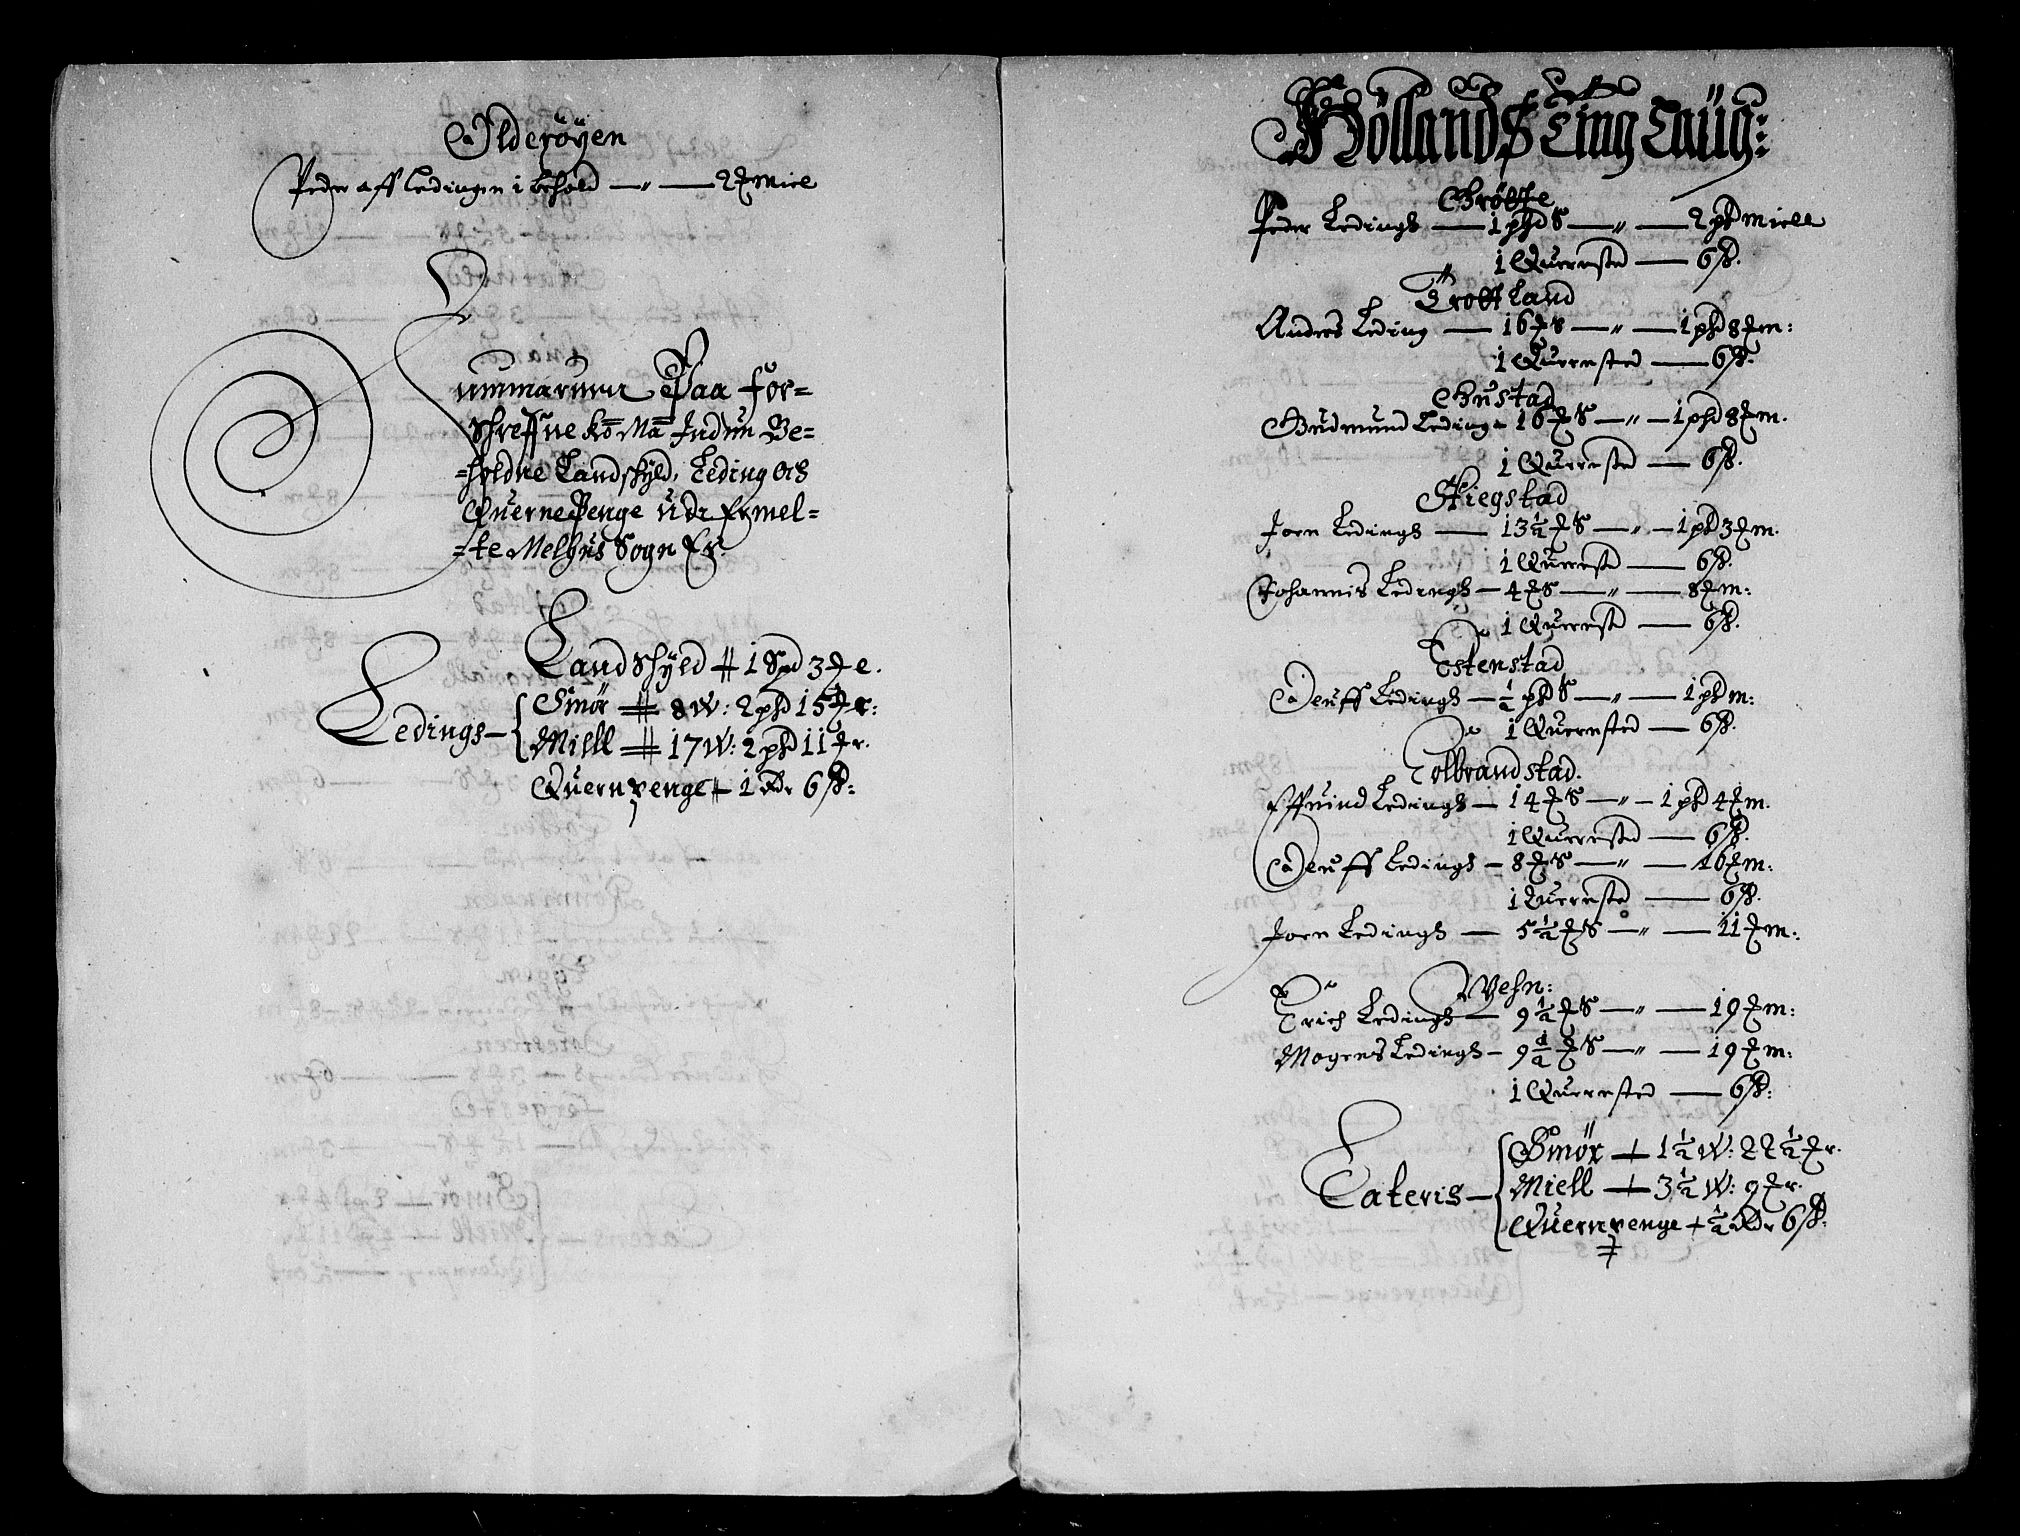 Olderöyen
Peder aff Ledingen i behold — " — 2 ℔ Miel
Summarum Paa for=
schreffne Ko Ma Inden Be=
=holdne Landskyld, Leding och
Querne Penge udi Ermel=
=te Melhus Sogn Er.
Landskyld ╫ 1 Spd 3 ℔ r.
Ledings — Smör ╫ 8 W: 2 phd 15 ℔ r:
Miell ╫ 17 W: 2 phd 11 ℔ r.
Quernpenge ╫ 1 Rdr 6 ß:
Höllands Ting Laug:
Grötte
Peder Ledings — 1 phd S — " — 2 phd miell
1 Quernsted — 6 ß.
Trotland
Anders Leding — 16 ℔ S — " — 1 phd 8 ℔ m:
1 Quernsted — 6 ß.
Gustad
Gudmund Leding — 16 ℔ S — " — 1 phd 8 ℔ m.
1 Quernsted — 6 ß.
Kiegstad
Joen Ledings — 13 ½ ℔ S — " — 1 phd 3 ℔ m.
1 Quernsted — 6 ß.
Johannis Ledings — 4 ℔ S — " — 8 ℔ m:
1 Quernsted — 6 ß.
Estenstad
Oeluff Ledings — ½ phd S — " — 1 phd m:
1 Quernsted — 6 ß.
Tolbrandstad.
Effuind Ledings — 14 ℔ S — " — 1 phd 4 ℔ m.
1 Quernsted — 6 ß.
Oeluff Ledings — 8 ℔ S — " — 16 ℔ m:
1 Quernsted — 6 ß.
Joen Ledings — 5 ½ ℔ S — " — 11 ℔ m:
Wehn:
Erich Ledings — 9 ½ ℔ S — " — 19 ℔ m:
Mogens Ledings — 9 ½ ℔ S — " — 19 ℔ m:
1 Quernsted — 6 ß:
Lateris — Smör + 1 ½ W: 22 ½ ℔ r.
Miell + 3 ½ W: 9 ℔ r.
Quernpenge + ½ Rdr 6 ß: